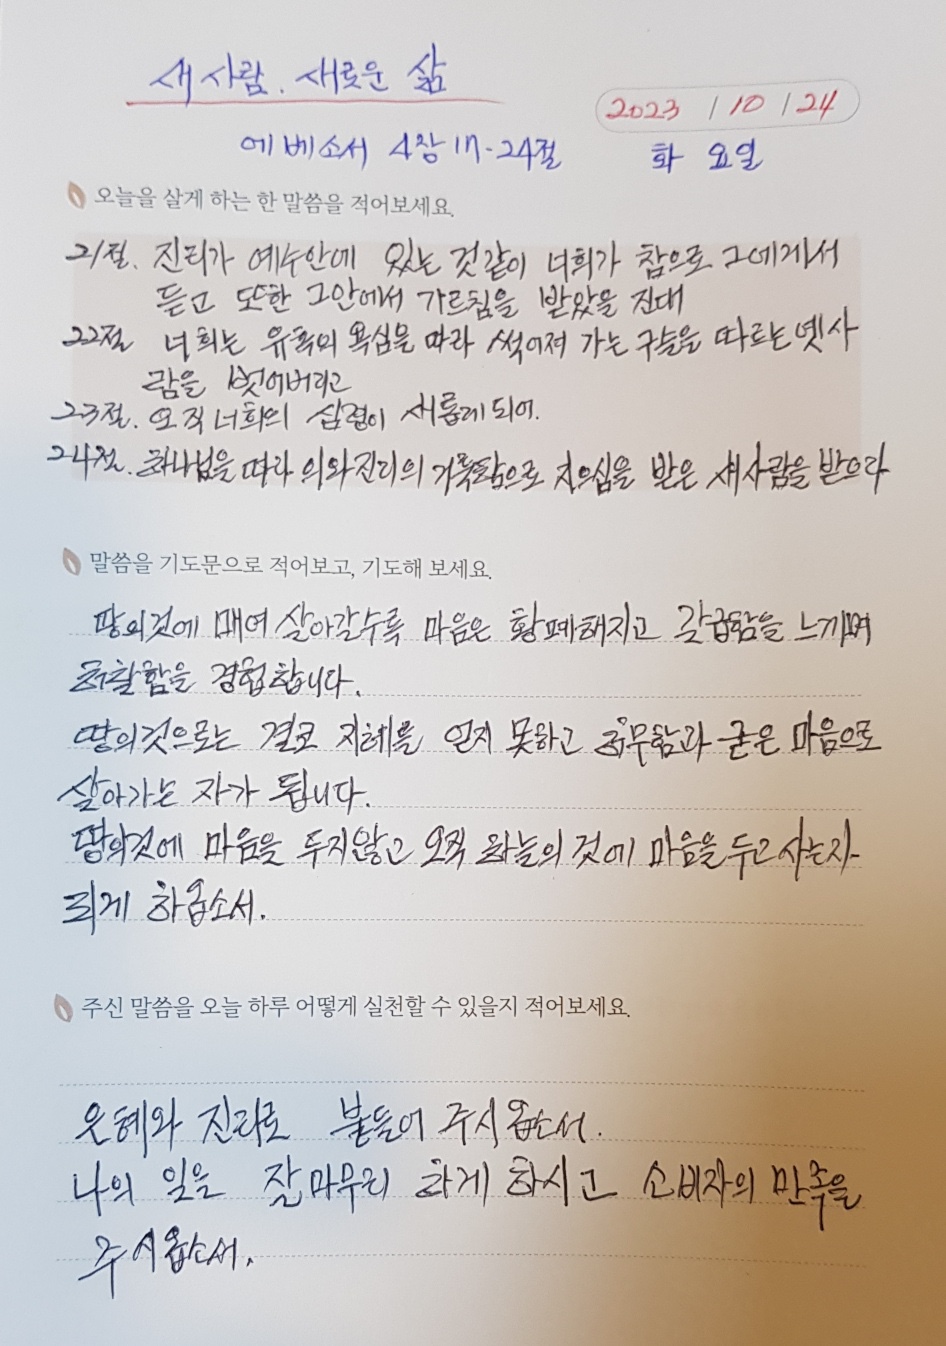 새사람. 새로운 삶
2023 / 10 / 24
에베소서 4장 17-24절 화요일
오늘을 살게 하는 한 말씀을 적어보세요.
21절. 진리가 예수안에 있는 것같이 너희가 참으로 그에게서
듣고 또한 그안에서 가르침을 받았을 진대
22절 너희는 유혹의 욕심을 따라 썩어져 가는 구습을 따르는 옛사
람을 벗어버리고
23절. 오직 너희의 심령이 새롭게 되어.
24절. 하나님을 따라 의와진리의 거룩함으로 지으심을 받은 새사람을 받으라
말씀을 기도문으로 적어보고, 기도해 보세요.
땅의것에 매여 살아갈수록 마음은 황폐해지고 갈급함을 느끼며
허탈함을 경험합니다.
땅의것으로는 결코 지혜를 얻지 못하고 허무함과 굳은 마음으로
살아가는 자가 됩니다.
땅의것에 마음을 두지않고 오직 하늘의 것에 마음을 두고 사는자
되게 하옵소서.
주신 말씀을 오늘 하루 어떻게 실천할 수 있을지 적어보세요.
은혜와 진리로 붙들어 주시옵소서.
나의 일을 잘마무리 하게 하시고 소비자의 만족을
주시옵소서.